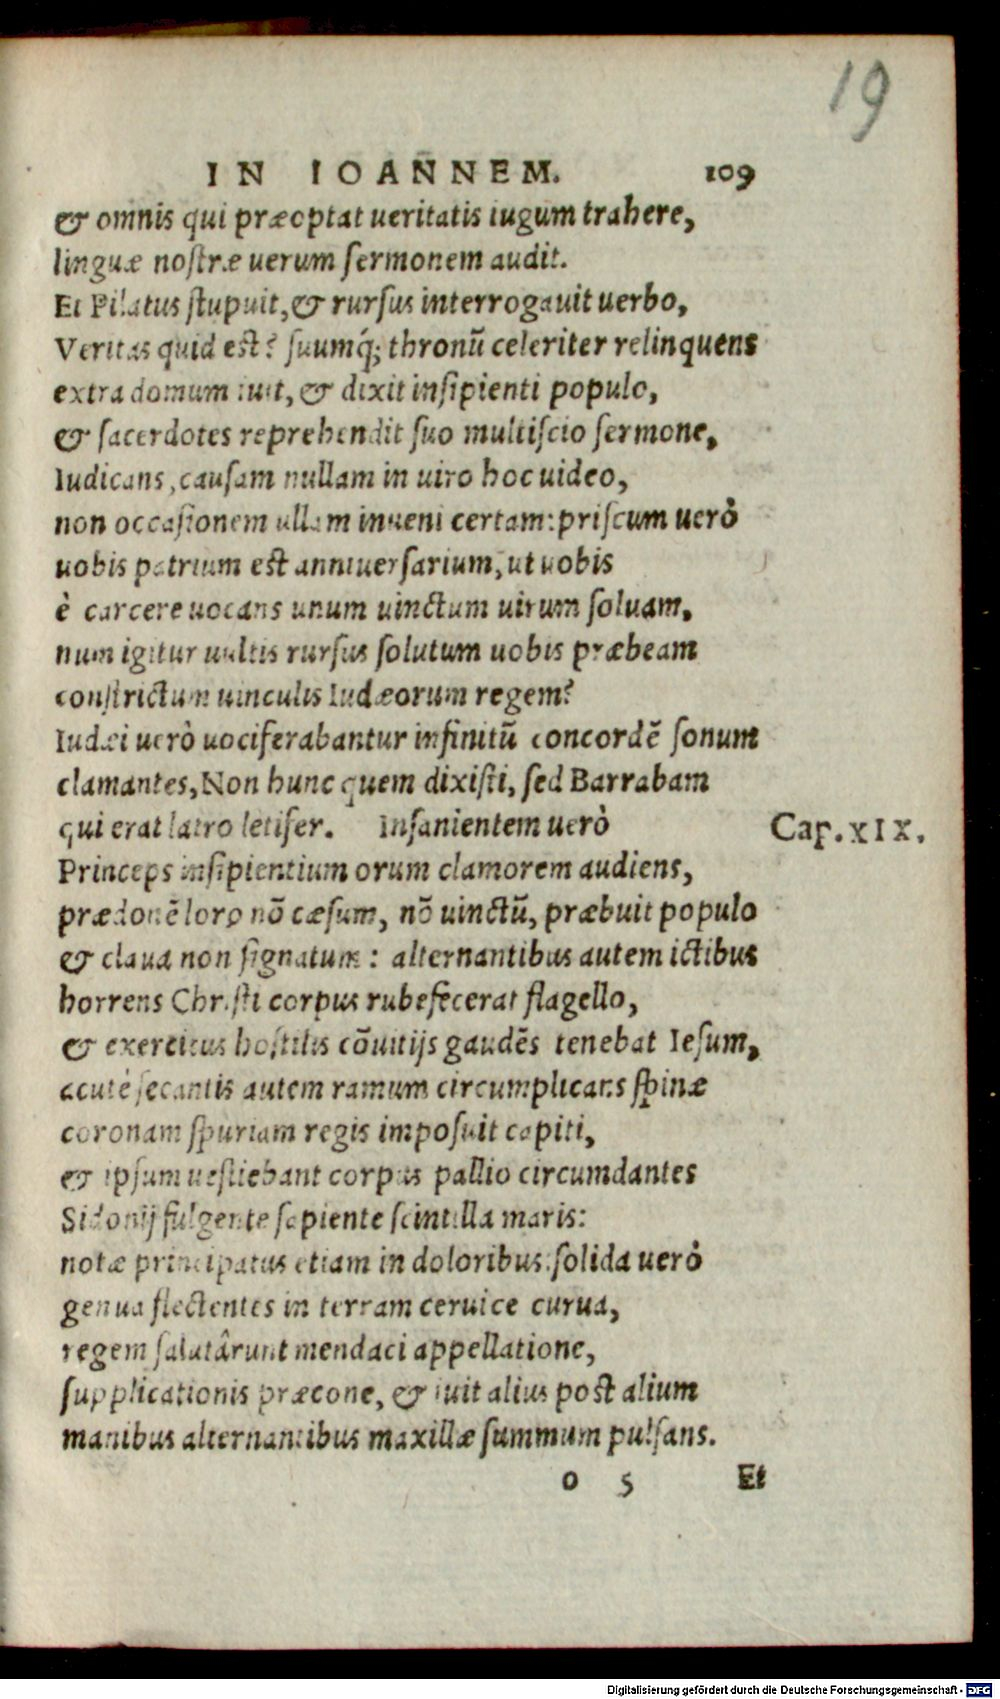 19
IN IOANNEM. 109
& omnis qui præoptat ueritatis iugum trahere,
linguæ nostræ uerum sermonem audit.
Et Pilatus stupuit, & rursus interrogauit uerbo,
Veritas quid est? suumq́; thronũ celeriter relinquens
extra domum iuit, & dixit insipienti populo,
& sacerdotes reprehendit suo multiscio sermone,
Iudicans, causam nullam in uiro hoc uideo,
non occasionem ullam inueni certam: priscum uerò
uobis patrium est anniuersarium, ut uobis
è carcere uocans unum uinctum uirum soluam,
num igitur uultis rursus solutum uobis præbeam
constrictum uinculis Iudæorum regem?
Iudæi uerò uociferabantur infinitũ concordẽ sonum
clamantes, Non hunc quem dixisti, sed Barrabam
qui erat latro letifer. Insanientem uerò
Cap. XIX.
Princeps insipientium orum clamorem audiens,
prædonẽ loro nõ cæsum, nõ uinctũ, præbuit populo
& claua non signatum: alternantibus autem ictibus
horrens Christi corpus rubefecerat flagello,
& exercitus hostilis cõuitijs gaudẽs tenebat Iesum,
acutè secantis autem ramum circumplicans spinæ
coronam spuriam regis imposuit capiti,
& ipsum uestiebant corpus pallio circumdantes
Sidonij fulgente sapiente scintilla maris:
notæ principatus etiam in doloribus: solida uerò
genua flectentes in terram ceruice curua,
regem salutârunt mendaci appellatione,
supplicationis præcone, & iuit alius post alium
manibus alternantibus maxillæ summum pulsans.
o 5 Et
Digitalisierung gefördert durch die Deutsche Forschungsgemeinschaft - DFG